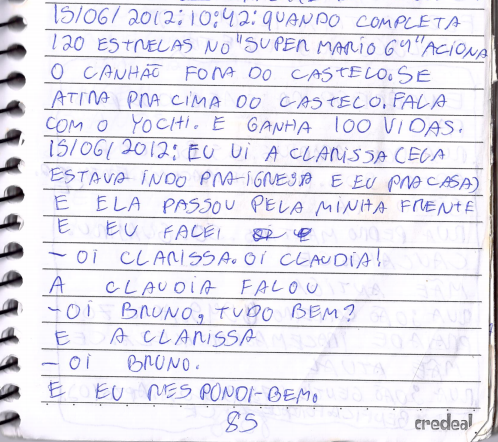 15/06/2012:10:42:QUANDO COMPLETA
120 ESTRELAS NO "SUPER MARIO 64" ACIONA
O CANHÃO FORA DO CASTELO. SE
ATIRA PRA CIMA DO CASTELO. FALA
COM O YOCHI. E GANHA 100 VIDAS.
15/06/2012: EU VI A CLARISSA (ELA
ESTAVA INDO PRA IGREJA E EU PRA CASA)
E ELA PASSOU PELA MINHA FRENTE
E EU FALEI
- OI CLARISSA. OI CLAUDIA!
A CLAUDIA FALOU
- OI BRUNO, TUDO BEM?
E A CLARISSA
- OI BRUNO.
E EU RESPONDI-BEM.
85
credeal